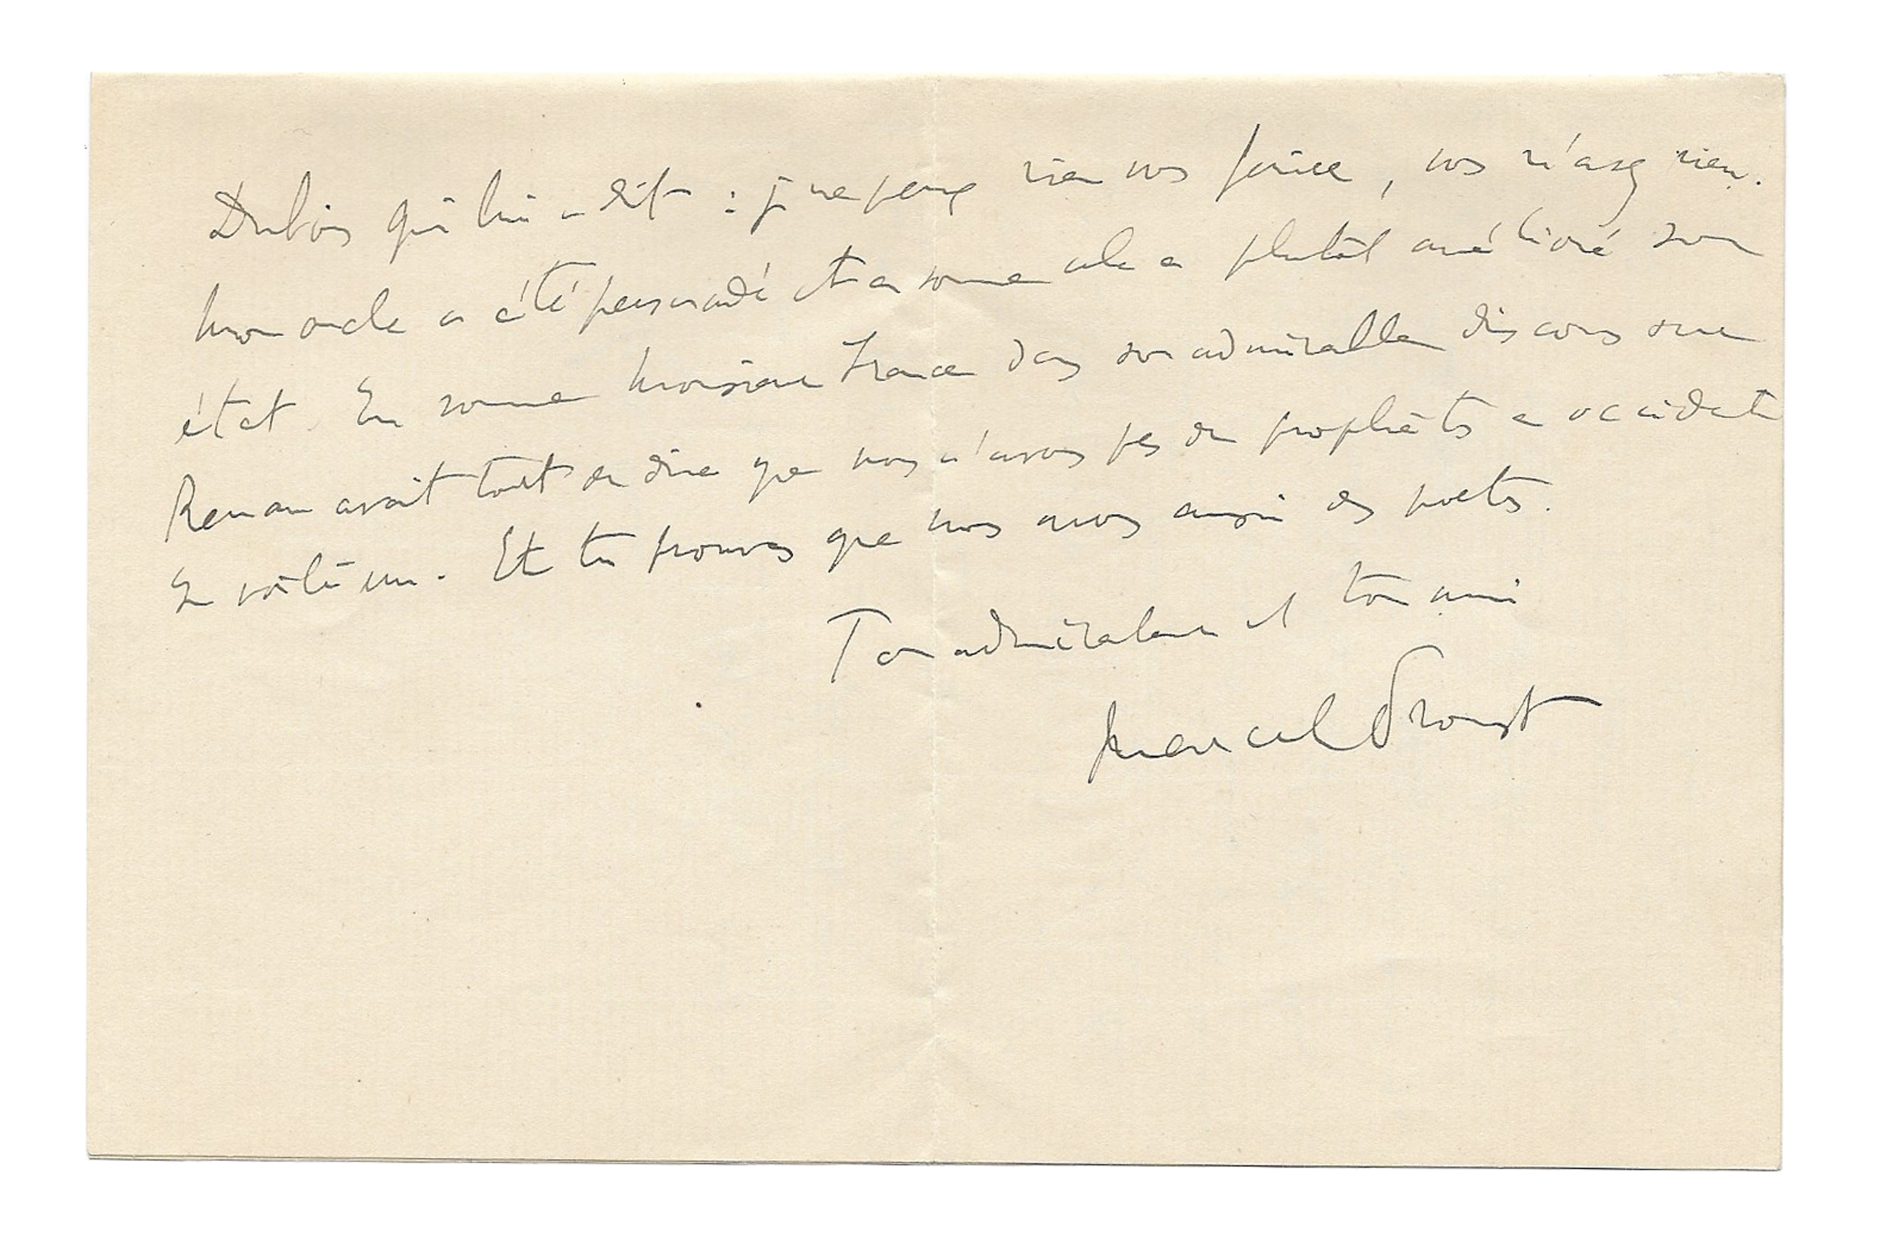 Dubois qui lui a dit : je ne peux rien vous faire, vous n'avez rien.
Mon oncle a été persuadé et en somme cela a plutôt amélioré son
état. En somme Monsieur France dans son admirable discours sur
Renan avait tort de dire que nous n'avons pas de prophètes en occident
En voilà un. Et tu prouves que nous avons aussi des poètes.
Ton admirateur et ton ami
Marcel Proust